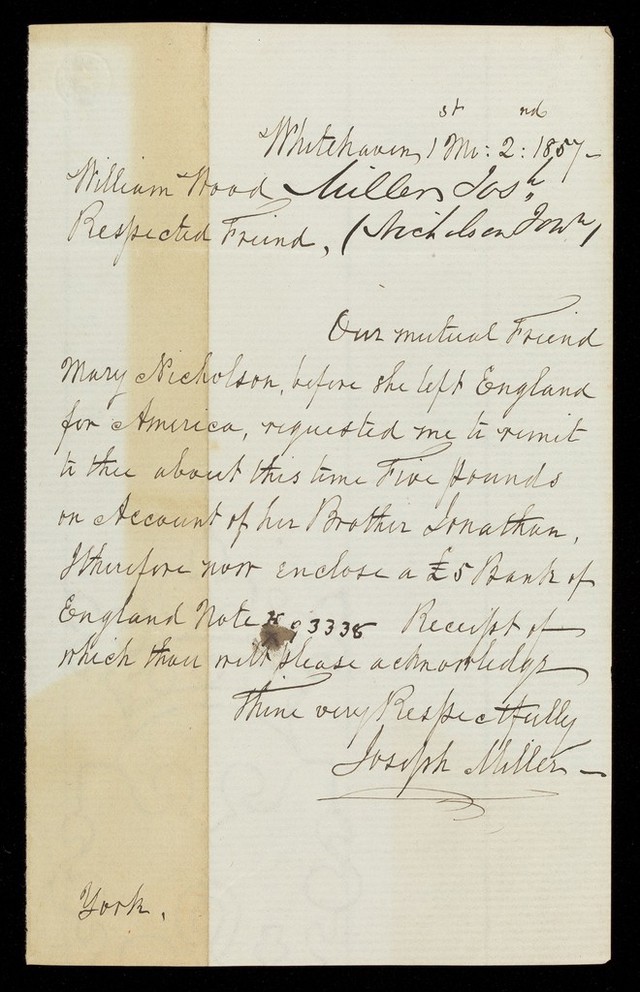 Whitehaven 1st Mo: 2nd: 1857 –
William Wood Miller Josh
Respected Friend, (Nicholson Jonn)
Our mutual Friend
Mary Nicholson, before she left England
for America, requested me to remit
to thee about this time Five pounds
on Account of her Brother Jonathan,
I therefore now enclose a £5 Bank of
England Note 3338 Receipt of
which thou wilt please acknowledge
Thine very Respectfully
Joseph Miller –
York.